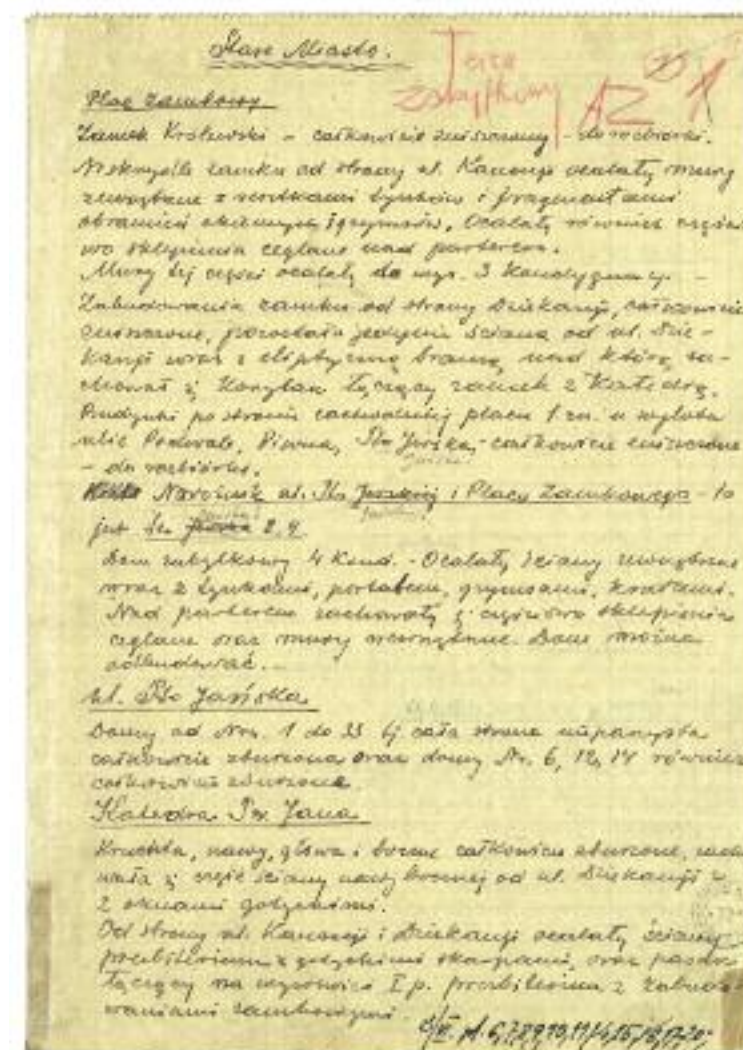 Stare Miasto.
Teren
Zabytkowy AZ 1
Plac Zamkowy
Zamek Królewski – całkowicie zniszczony – do rozbiórki.
Na skrzydle zamku od strony ul. Kanonji ocalały mury
zewnętrzne z resztkami tynków i fragmentami
obramień okiennych i gzymsów. Ocalały również części
wo sklepienia ceglane nad parterem.
Mury tej części ocalały do wys. 3 kondygnacji. –
Zabudowania zamku od strony Dziekanji, całkowicie
zniszczone, pozostała jedynie ściana od ul. Dzie-
kanji wraz z eliptyczną bramą, nad którą za-
chował się korytarz łączący zamek z Katedrą.
Budynki po stronie zachodniej placu t zn. u wylotu
ulic Podwale, Piwna, Św. – całkowicie zniszczone
– do rozbiórki.
Narożnik ul. Św. i Placu Zamkowego – to
jest Św. 2.
Dom zabytkowy 4 kond. – Ocalały ściany zewnętrzne
wraz z tynkami, portalem, gzymsami, kratami.
Nad parterem zachowały się częściowo sklepienia
ceglane oraz mury wewnętrzne. Dom można
odbudować. –
ul. Św. Jańska
Domy od Nru. 1 do 33 tj cała strona nieparzysta
całkowicie zburzona oraz domy Nr. 6, 12, 14 również
całkowicie zburzone.
Katedra Św. Jana
Kruchta, nawy, główna i boczne całkowicie zburzone, zacho
wała się część ściany nawy bocznej od ul. Dziekanji z
2 oknami gotyckimi.
Od strony ul. Kanonji i Dziekanji ocalały ściany
prezbiterium z gotyckimi skarpami, oraz pasaż
łączący na wysokości I p. prezbiterium z zabudo
waniami zamkowymi.